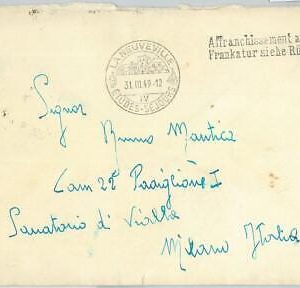 LA NEUVEVILLE
31.III.49-12
IV
ETUDES-SÉJOURS
Affranchissement a
Frankatur siehe Rü
Signor
Bruno Mantica
Cam 22 Padiglione I
Sanatorio di Vialba
Milano Italia